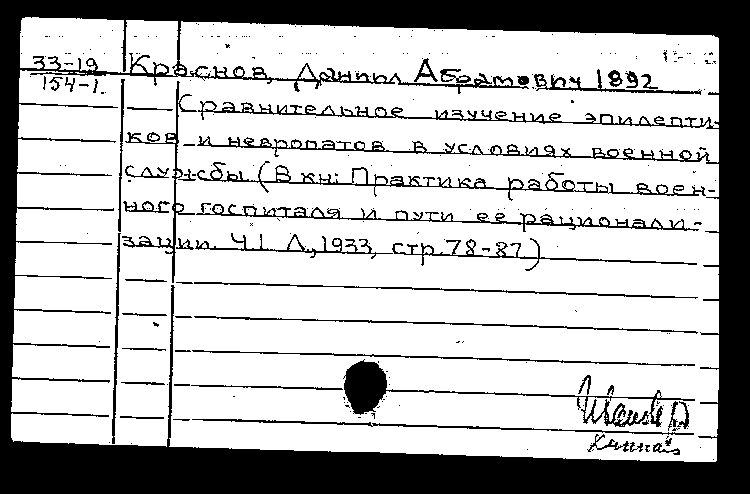 33-19 Краснов, Даниил Абрамович 1892
154-1.
Сравнительное изучение эпилепти-
ков и невропатов в условиях военной
службы (В кн: Практика работы воен-
ного госпиталя и пути ее рационали-
зации. Ч.I. Л., 1933, стр. 78-87)